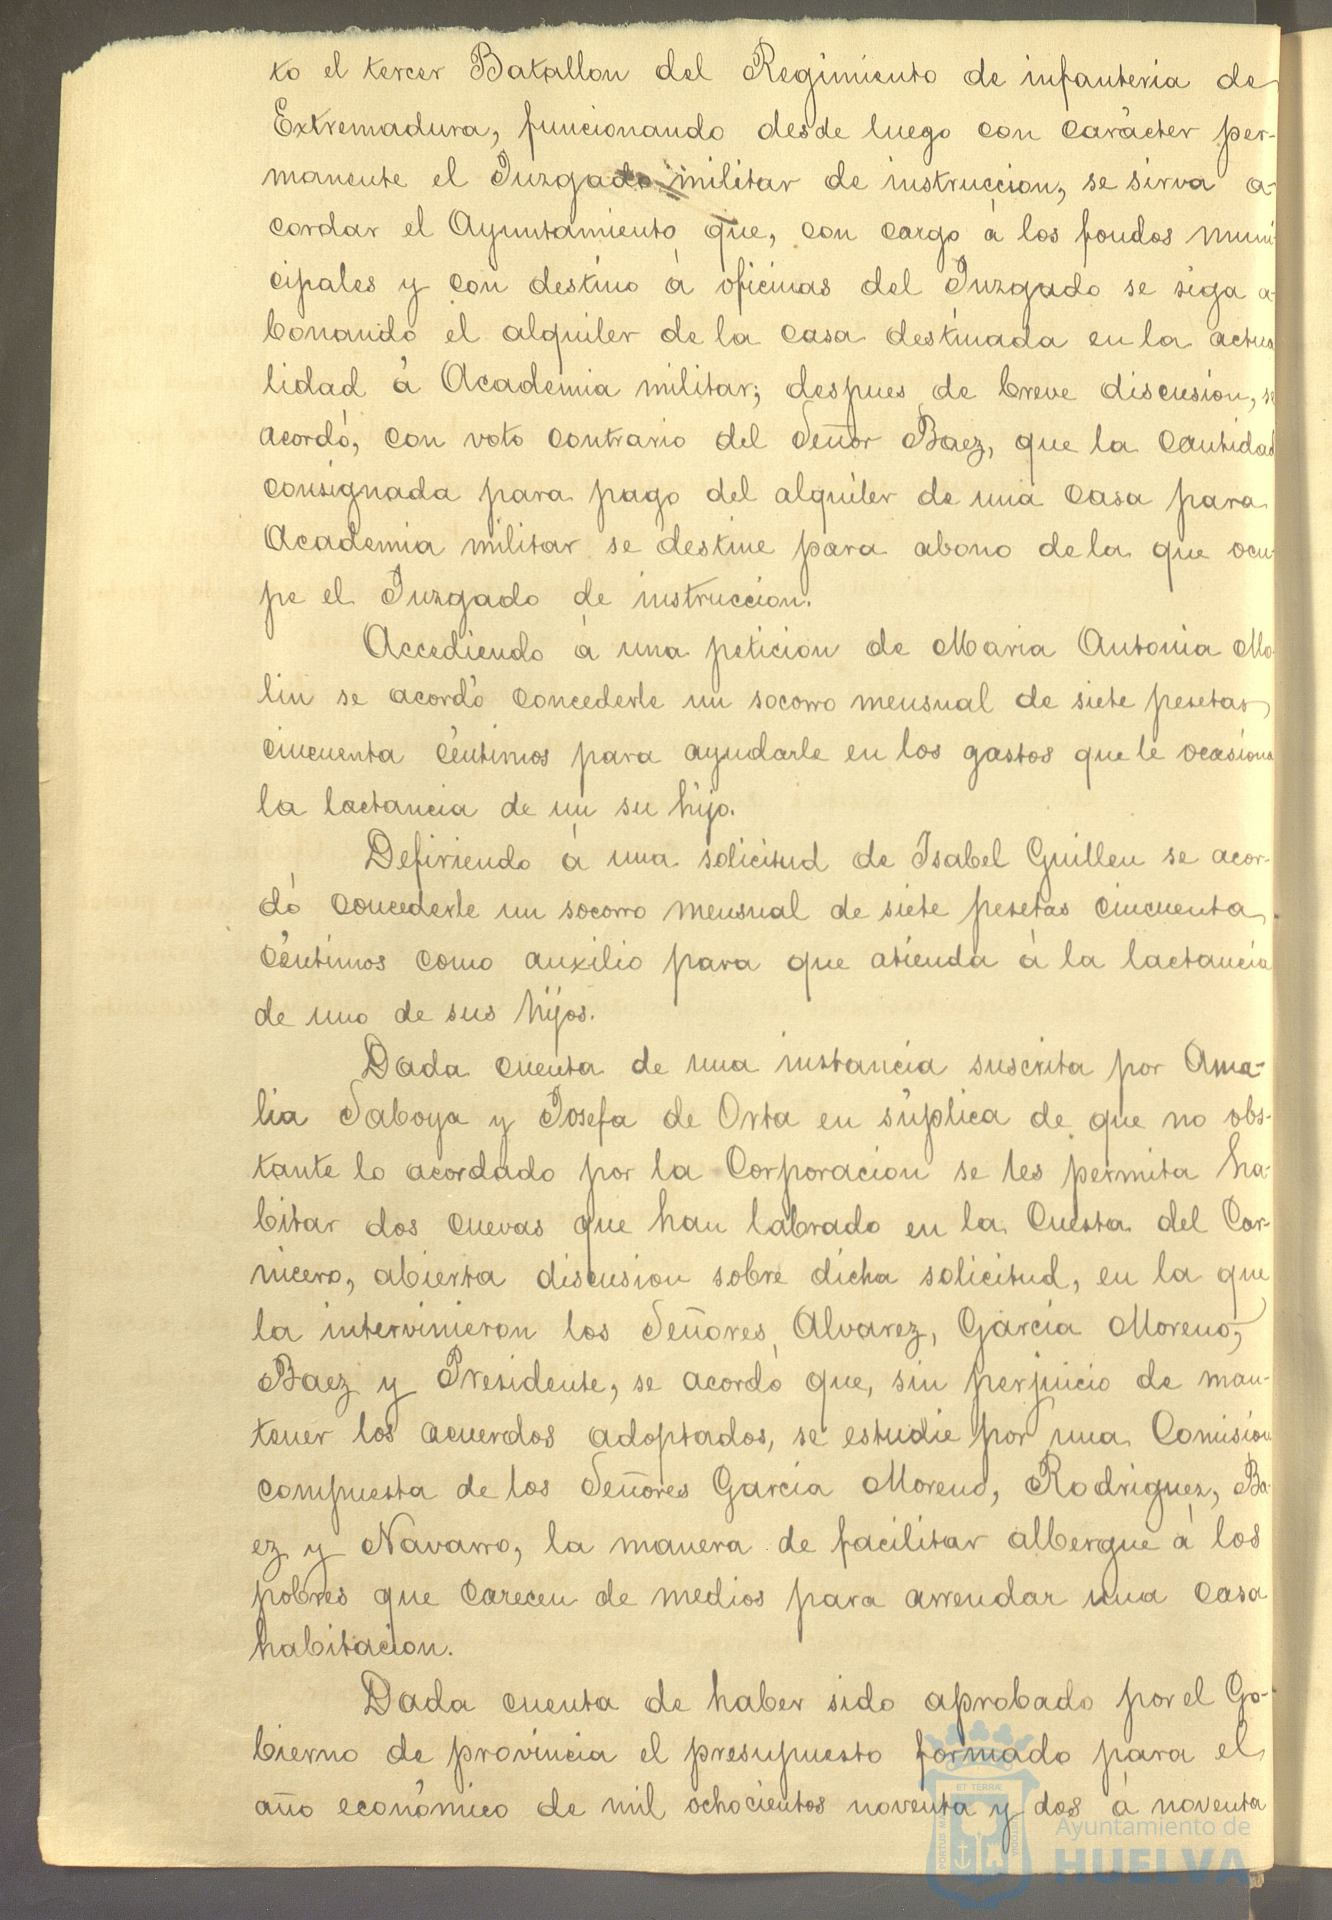 to el tercer Batallon del Regimiento de infanteria de
Extremadura, funcionando desde luego con carácter per-
manente el Juzgado militar de instruccion, se sirva a-
cordar el Ayuntamiento que, con cargo á los fondos muni
cipales y con destino á oficinas del Juzgado se siga a-
bonando el alquiler de la casa destinada en la actua
lidad á Academia militar; despues de breve discusion, se
acordó, con voto contrario del Señor Baez, que la cantidad
consignada para pago del alquiler de una casa para
Academia militar se destine para abono de la que ocu-
pe el Juzgado de instruccion.
Accediendo á una peticion de Maria Antonia Mo
lin se acordó concederle un socorro mensual de siete pesetas
cincuenta céntimos para ayudarle en los gastos que le ocasiona
la lactancia de un su hijo.
Defiriendo á una solicitud de Isabel Guillen se acor-
dó concederle un socorro mensual de siete pesetas cincuenta
céntimos como auxilio para que atienda á la lactancia
de uno de sus hijos.
Dada cuenta de una instancia suscrita por Ama-
lia Saboya y Josefa de Orta en súplica de que no obs-
tante lo acordado por la Corporacion se les permita ha-
bitar dos cuevas que han labrado en la Cuesta del Car-
nicero, abierta discusion sobre dicha solicitud, en la que
la intervinieron los Señores Alvarez, García Moreno,
Baez y Presidente, se acordó que, sin perjuicio de man-
tener los acuerdos adoptados, se estudie por una Comision
compuesta de los Señores García Moreno, Rodriguez, Ba-
ez y Navarro, la manera de facilitar albergue á los
pobres que carecen de medios para arrendar una casa
habitacion.
Dada cuenta de haber sido aprobado por el Go-
bierno de provincia el presupuesto formado para el
año económico de mil ochocientos noventa y dos á noventa
Ayuntamiento de
HUELVA